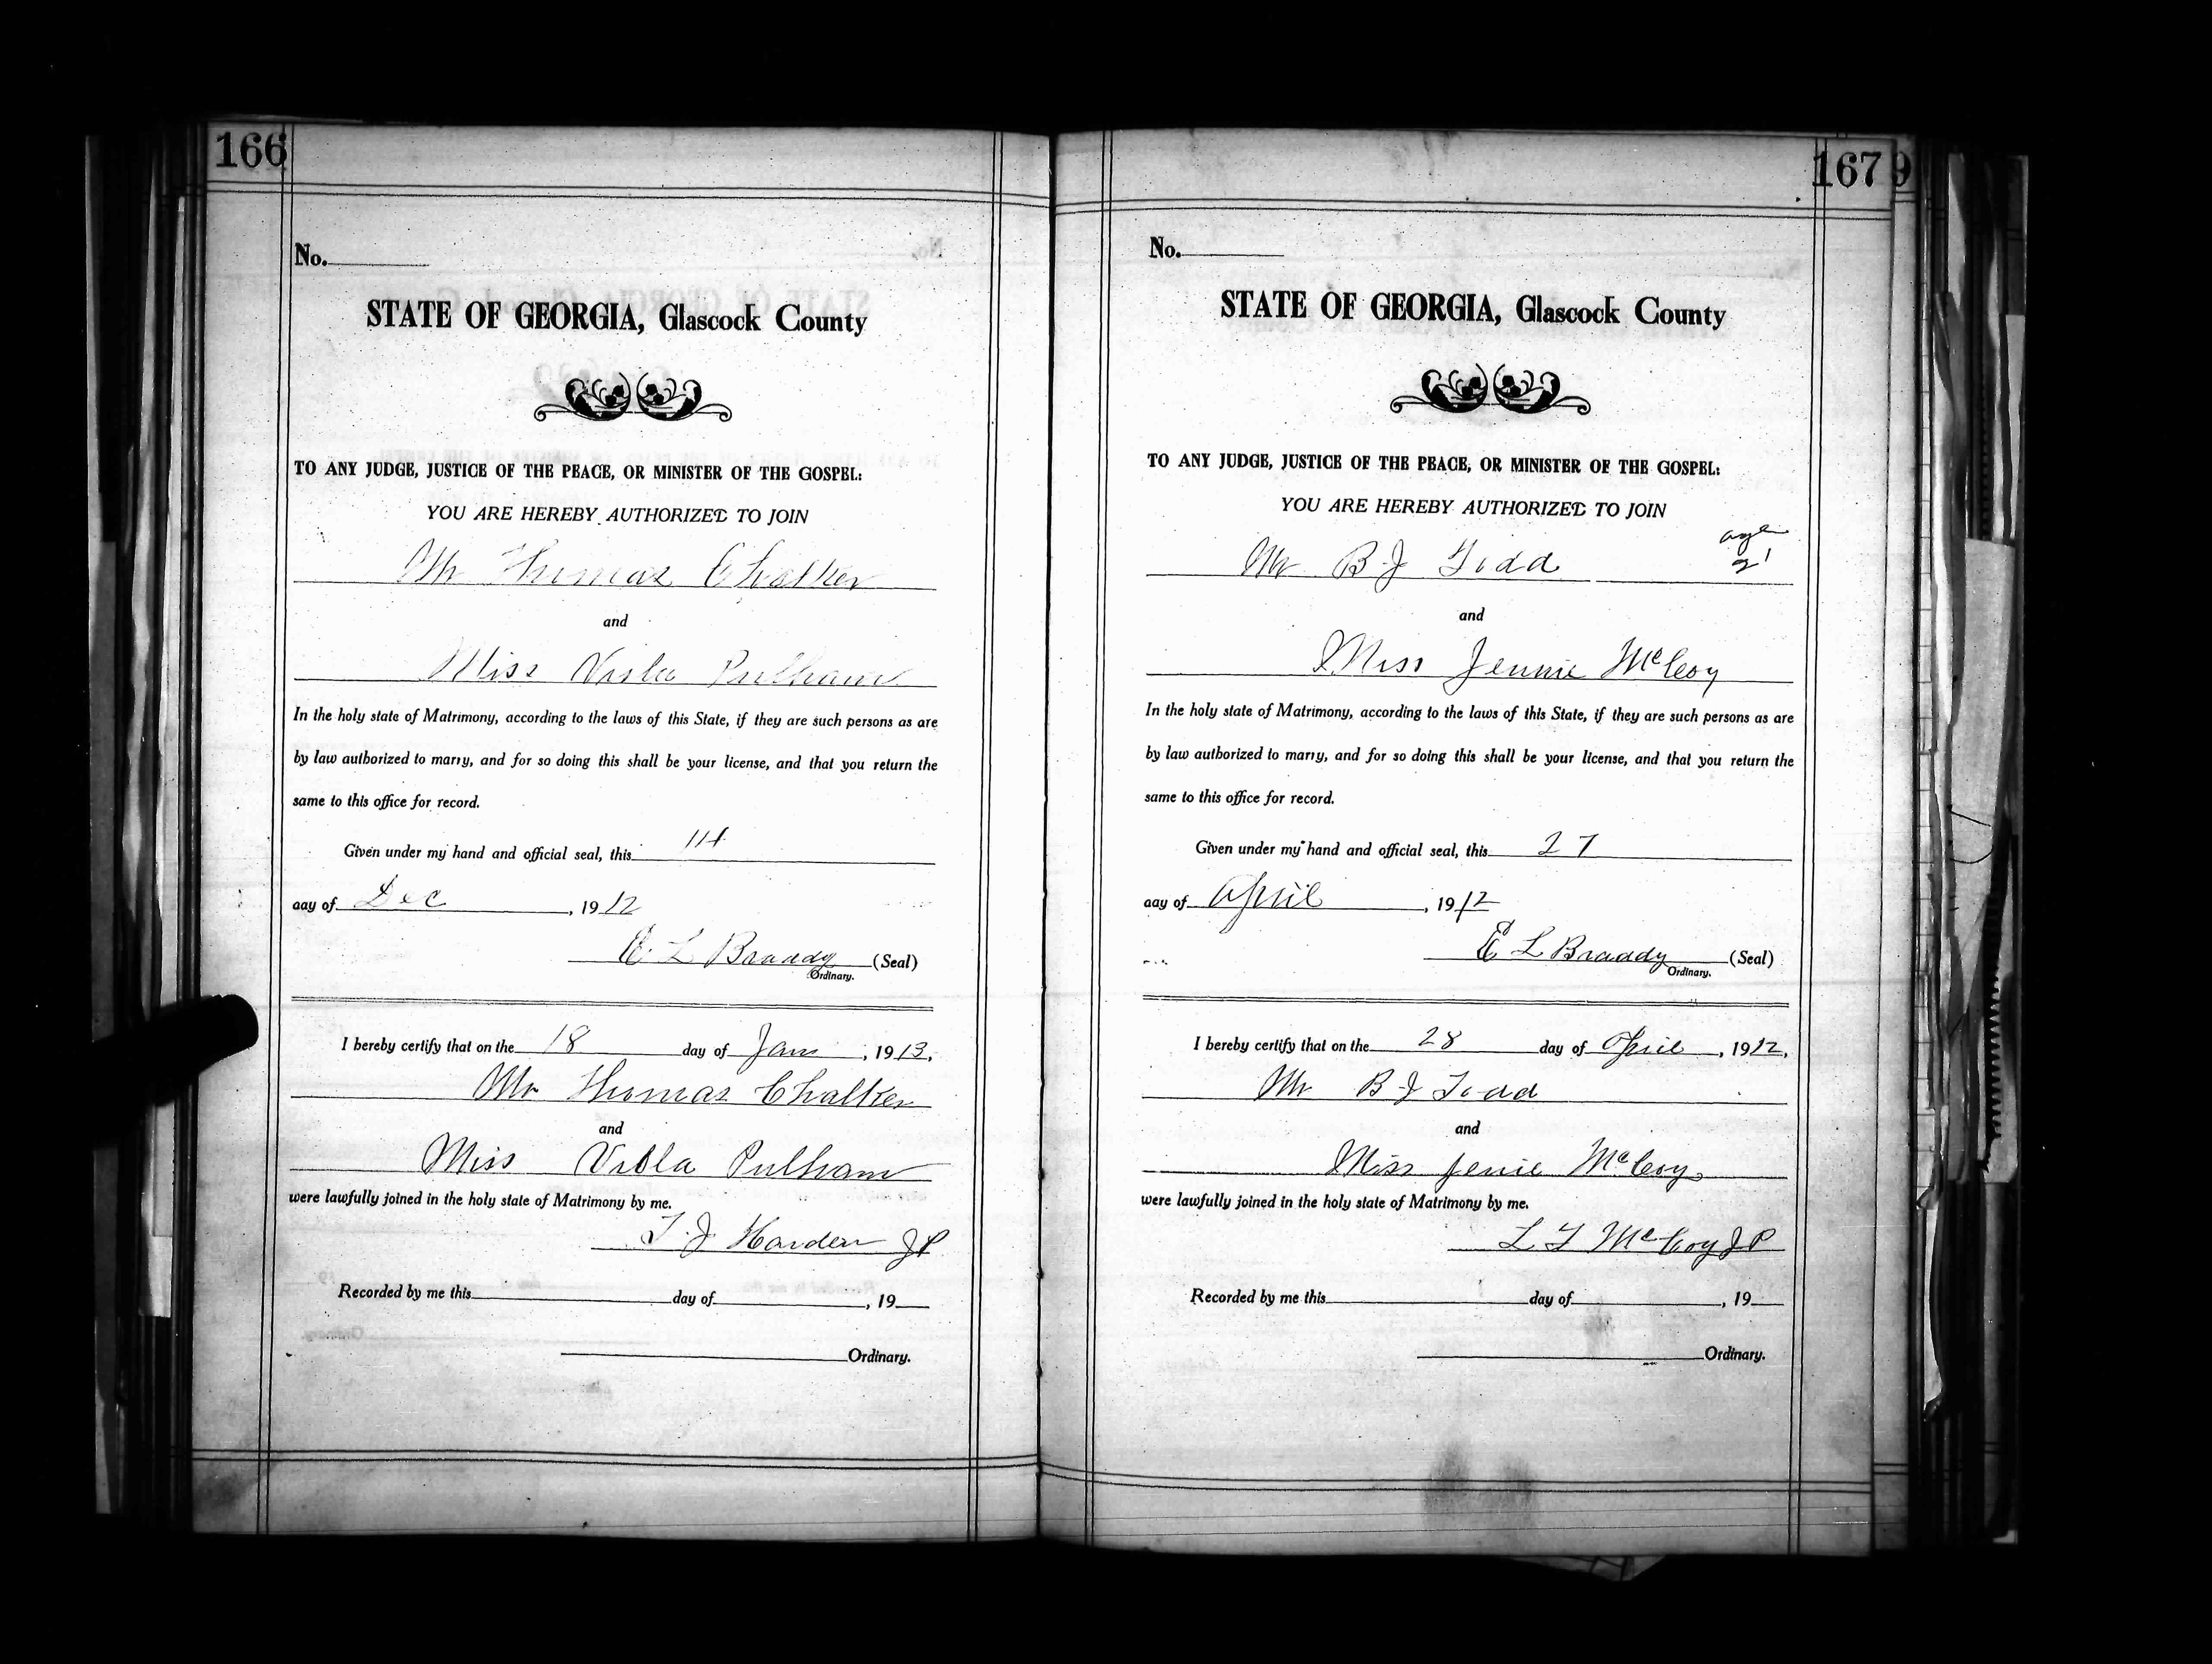 166
No.
STATE OF GEORGIA, Glascock County
TO ANY JUDGE, JUSTICE OF THE PEACE, OR MINISTER OF THE GOSPEL:
YOU ARE HEREBY AUTHORIZED TO JOIN
Mr Thomas Chalker
and
Miss Viola Pulham
In the holy state of Matrimony, according to the laws of this State, if they are such persons as are
by law authorized to marry, and for so doing this shall be your license, and that you return the
same to this office for record.
Given under my hand and official seal, this
day of Dec, 1912
E. L Braady (Seal)
Ordinary.
I hereby certify that on the 18 day of Jan, 1913.
Mr Thomas Chalker
and
Miss Viola Pulham
were lawfully joined in the holy state of Matrimony by me.
T. J Harden JP
Recorded by me this day of, 19
Ordinary.
167 9
No.
STATE OF GEORGIA, Glascock County
TO ANY JUDGE, JUSTICE OF THE PEACE, OR MINISTER OF THE GOSPEL:
YOU ARE HEREBY AUTHORIZED TO JOIN
age
Mr B J Todd 21
and
Miss Jennie McCoy
In the holy state of Matrimony, according to the laws of this State, if they are such persons as are
by law authorized to marry, and for so doing this shall be your license, and that you return the
same to this office for record.
Given under my hand and official seal, this 27
day of April, 1912
E L Braady (Seal)
Ordinary.
I hereby certify that on the 28 day of April, 1912.
Mr B J Todd
and
Miss Jenie McCoy
were lawfully joined in the holy state of Matrimony by me.
L T McCoy JP
Recorded by me this day of, 19
Ordinary.